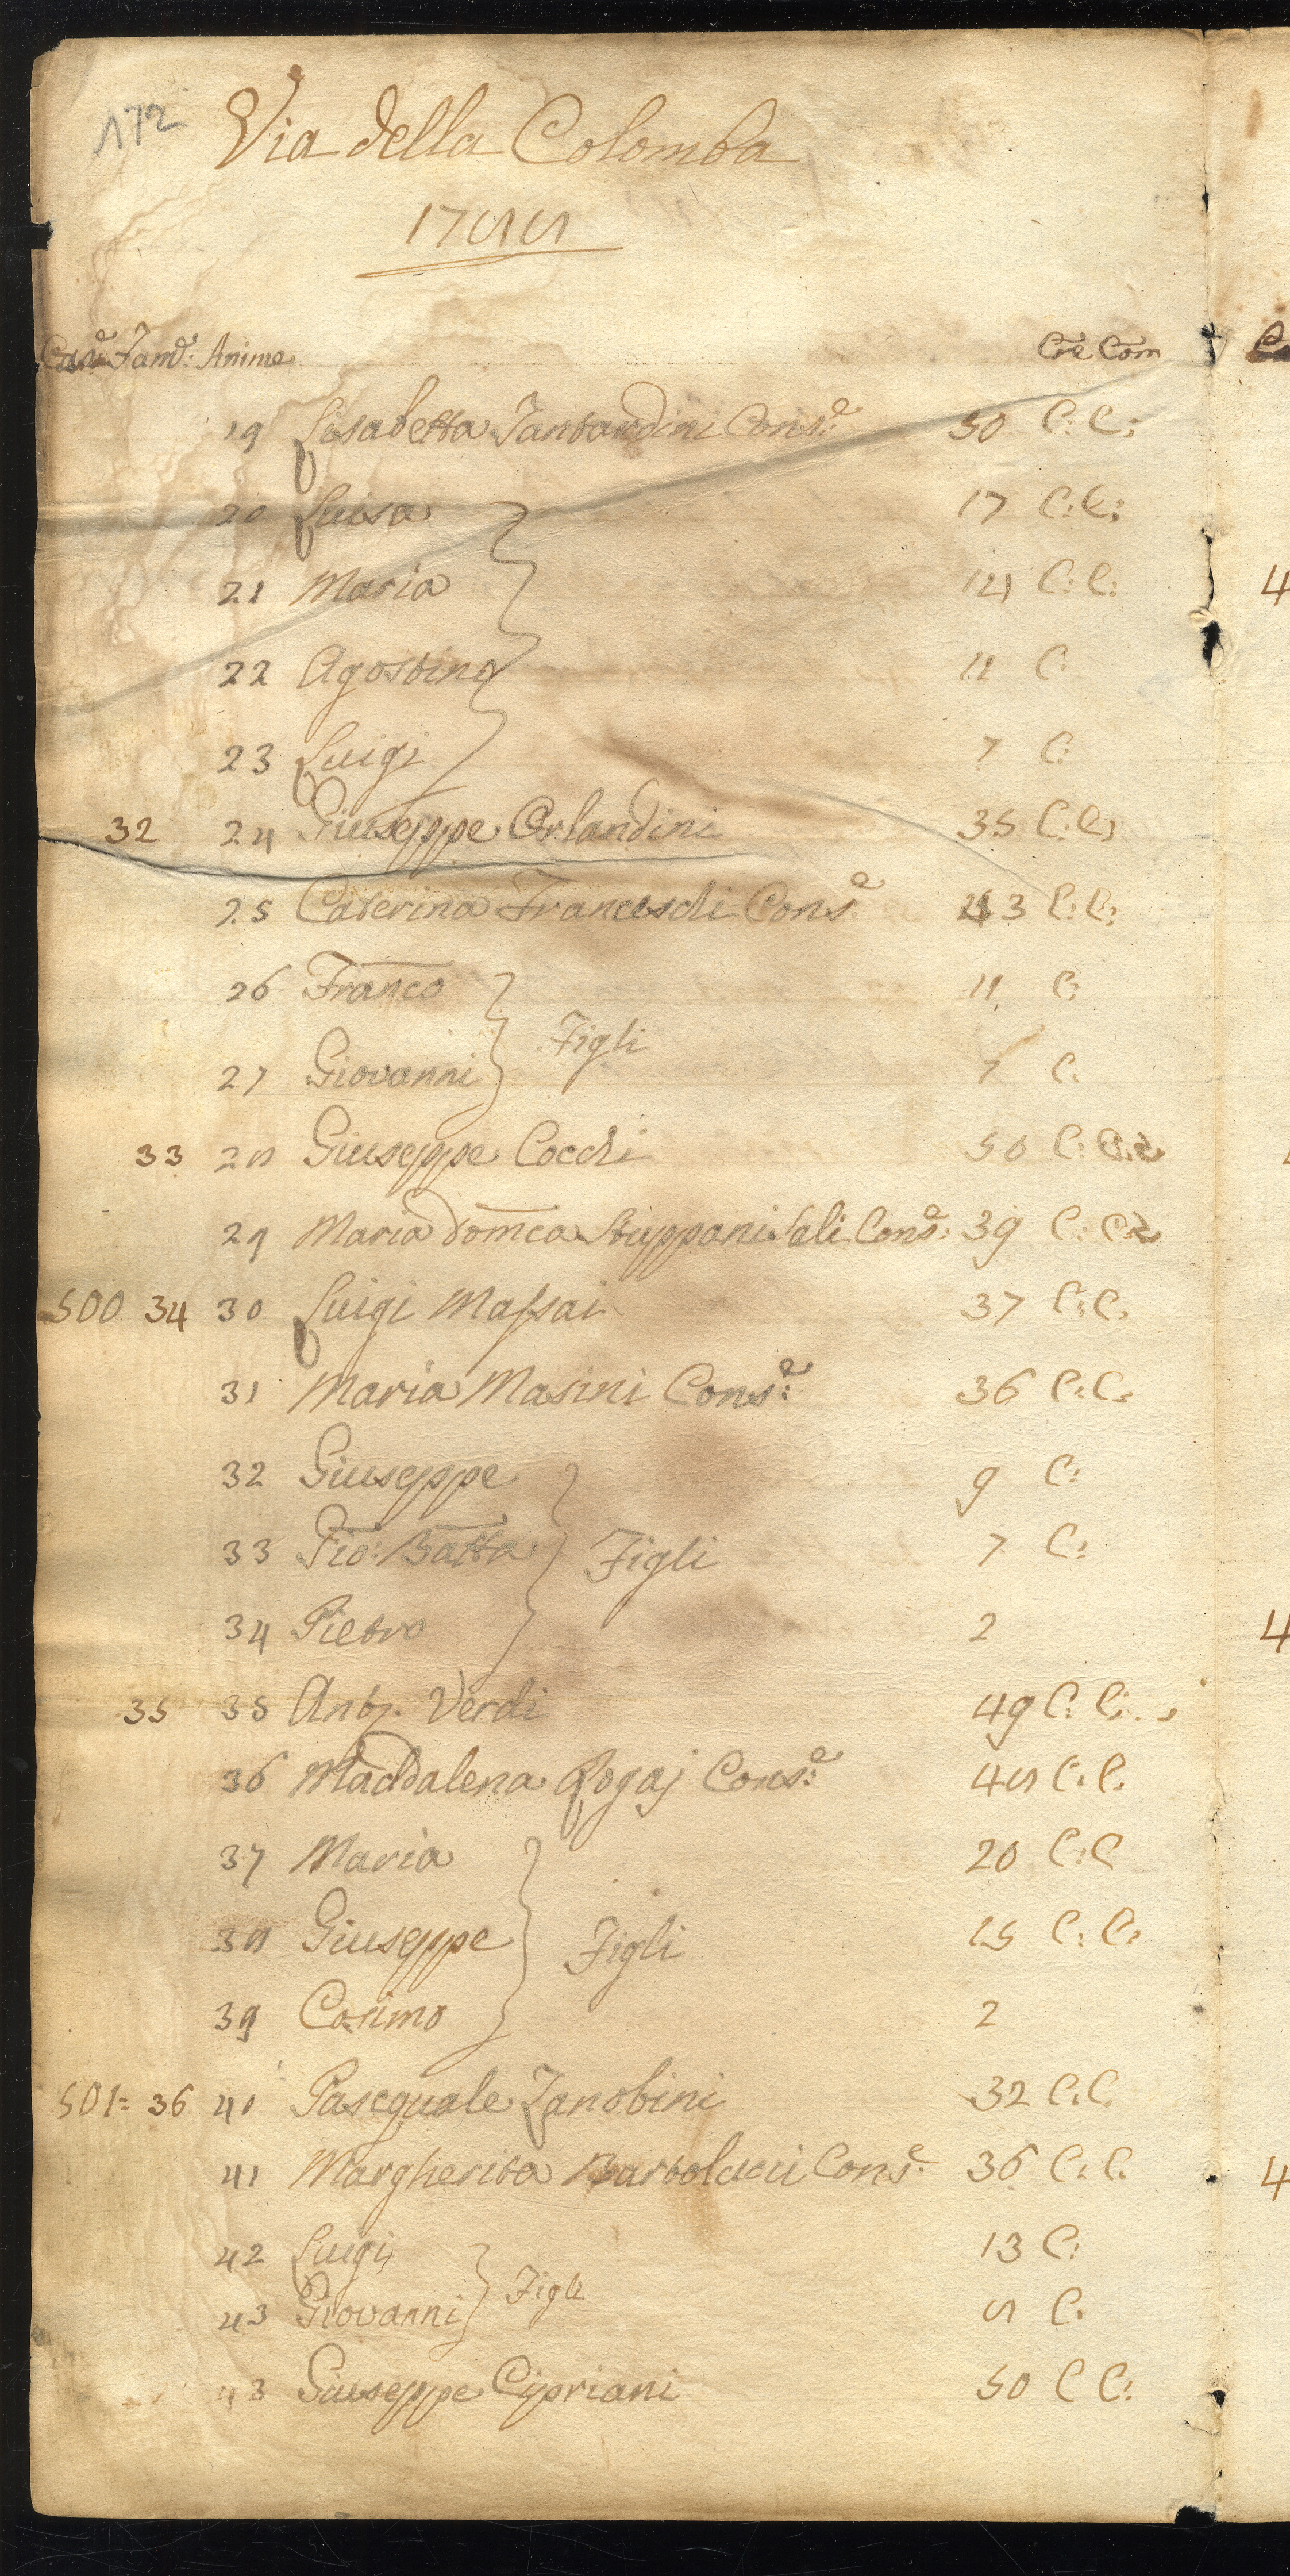 172 Via della Colomba
1788
Case Fam.e: Anime Cre Com
19 Lisabetta Tantardini Cons.e 50 C: C:
20 Luisa 17 C: C:
21 Maria 14 C: C:
22 Agostino 11 C:
23 Luigi 7 C:
32 24 Giuseppe Orlandini 35 C: C:
25 Caterina Franceschi Cons.e 43 C: C:
26 Franco 11 C:
Figli
27 Giovanni 7 C:
33 28 Giuseppe Cocchi 50 C:
29 Maria Domca Stuppani Sali Cons.e: 39 C:
500 34 30 Luigi Massai 37 C: C.
31 Maria Masini Cons.e: 36 C: C.
32 Giuseppe 9 C:
33 Gio: Batta Figli 7 C:
34 Pietro 2
35 35 Anto. Verdi 49 C: C:
36 Maddalena Rogaj Cons.e: 48 C. C.
37 Maria 20 C: C
38 Giuseppe Figli 15 C: C:
39 Cosimo 2
501= 36 40 Pasquale Zanobini 32 C. C.
41 Margherita Bartolucci Cons.e 36 C. C.
42 Luigi 13 C:
Figli
43 Giovanni 8 C.
43 Giuseppe Cipriani 50 C C:
4
4
4